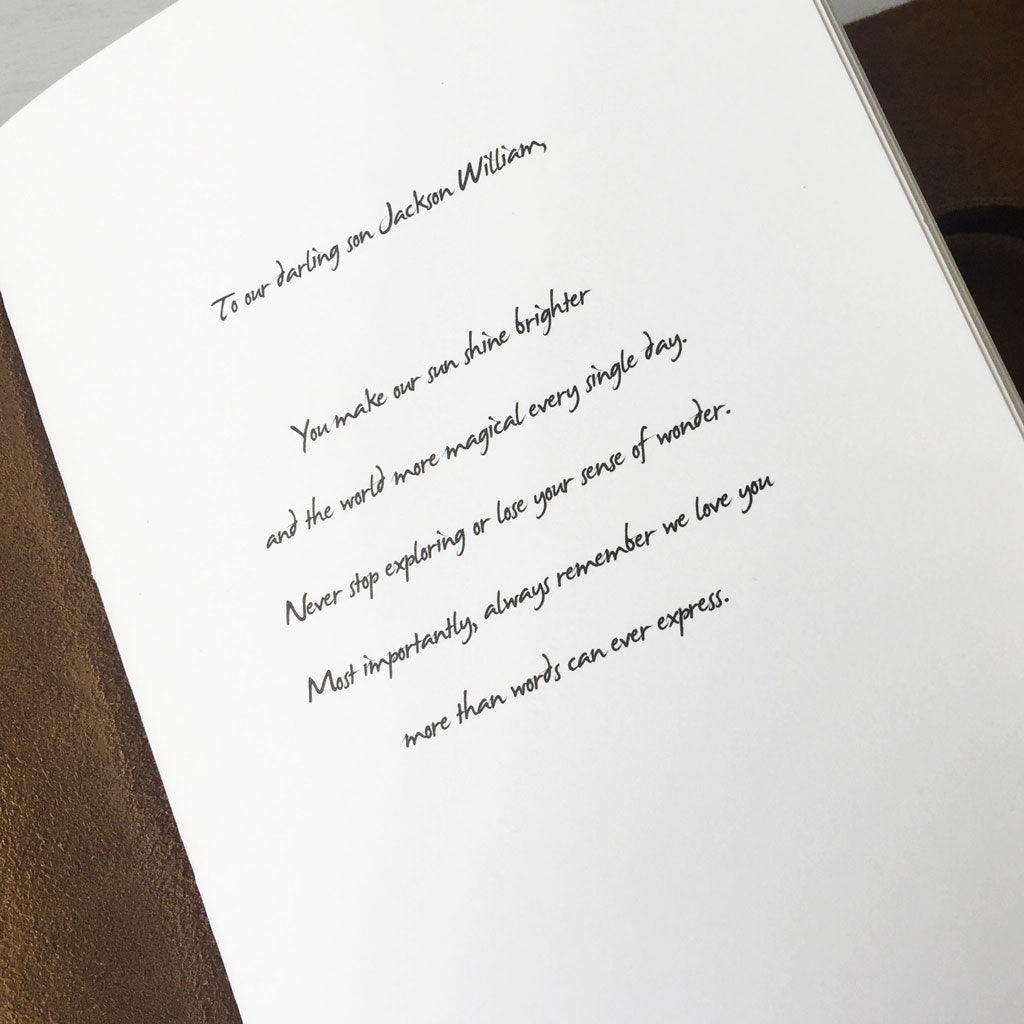 To our darling son Jackson William,
You make our sun shine brighter
and the world more magical every single day.
Never stop exploring or lose your sense of wonder.
Most importantly, always remember we love you
more than words can ever express.